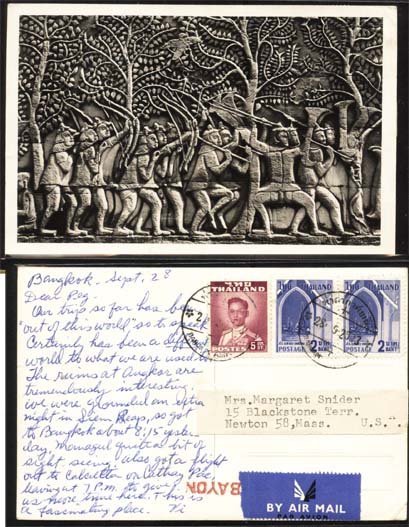 Bangkok, Sept. 28
Dear Peg-
Our trip so far has been
"out of this world" so to speak
Certainly has been a different
world to what we are used to.
The ruins at Angkor are
tremendously interesting.
We were grounded an extra
night in Siem Reap, so got
to Bangkok about 8:15 yester-
day. Managed quite a bit of
sight seeing. Also got a flight
out to Calcutta on Cathay Pac.
leaving at 7 P.M. to give
us more time here. This is
a fascinating place.
ไทย
THAILAND
POSTAGE
5
THAILAND
POSTAGE
2
BAHT
THAILAND
POSTAGE
2
BAHT
Mrs.Margaret Snider
15 Blackstone Terr.
Newton 58,Mass. U.S.
BAYON
BY AIR MAIL
PAR AVION